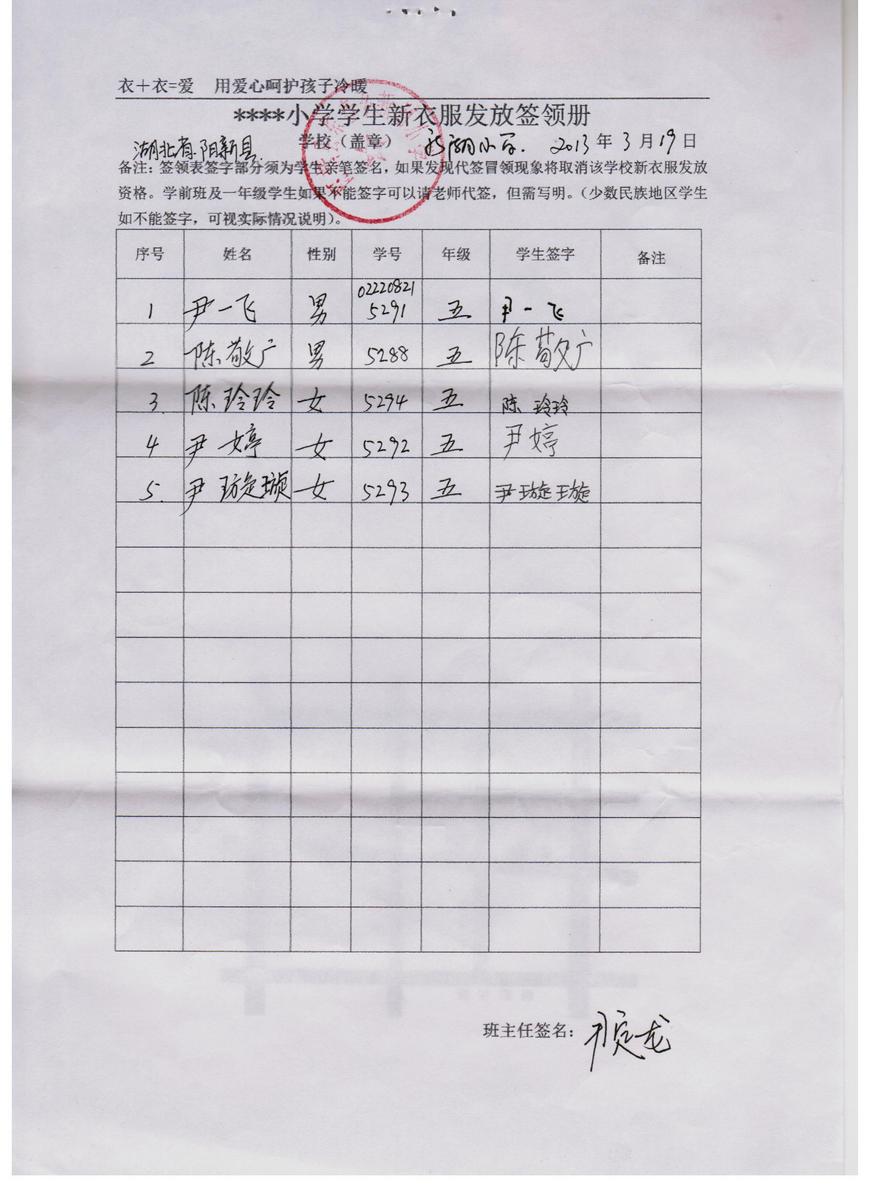 衣＋衣=爱 用爱心呵护孩子冷暖
****小学学生新衣服发放签领册
湖北省阳新县 学校（盖章） 小学. 2013年3月19日
备注：签领表签字部分须为学生亲笔签名，如果发现代签冒领现象将取消该学校新衣服发放
资格。学前班及一年级学生如果不能签字可以请老师代签，但需写明。（少数民族地区学生
如不能签字，可视实际情况说明）。
序号 姓名 性别 学号 年级 学生签字 备注
1 尹一飞 男 02220821 5291 五 尹一飞
2 陈敬广 男 5288 五 陈敬广
3. 陈玲玲 女 5294 五 陈玲玲
4 尹婷 女 5292 五 尹婷
5. 尹璇璇 女 5293 五 尹璇璇
班主任签名：